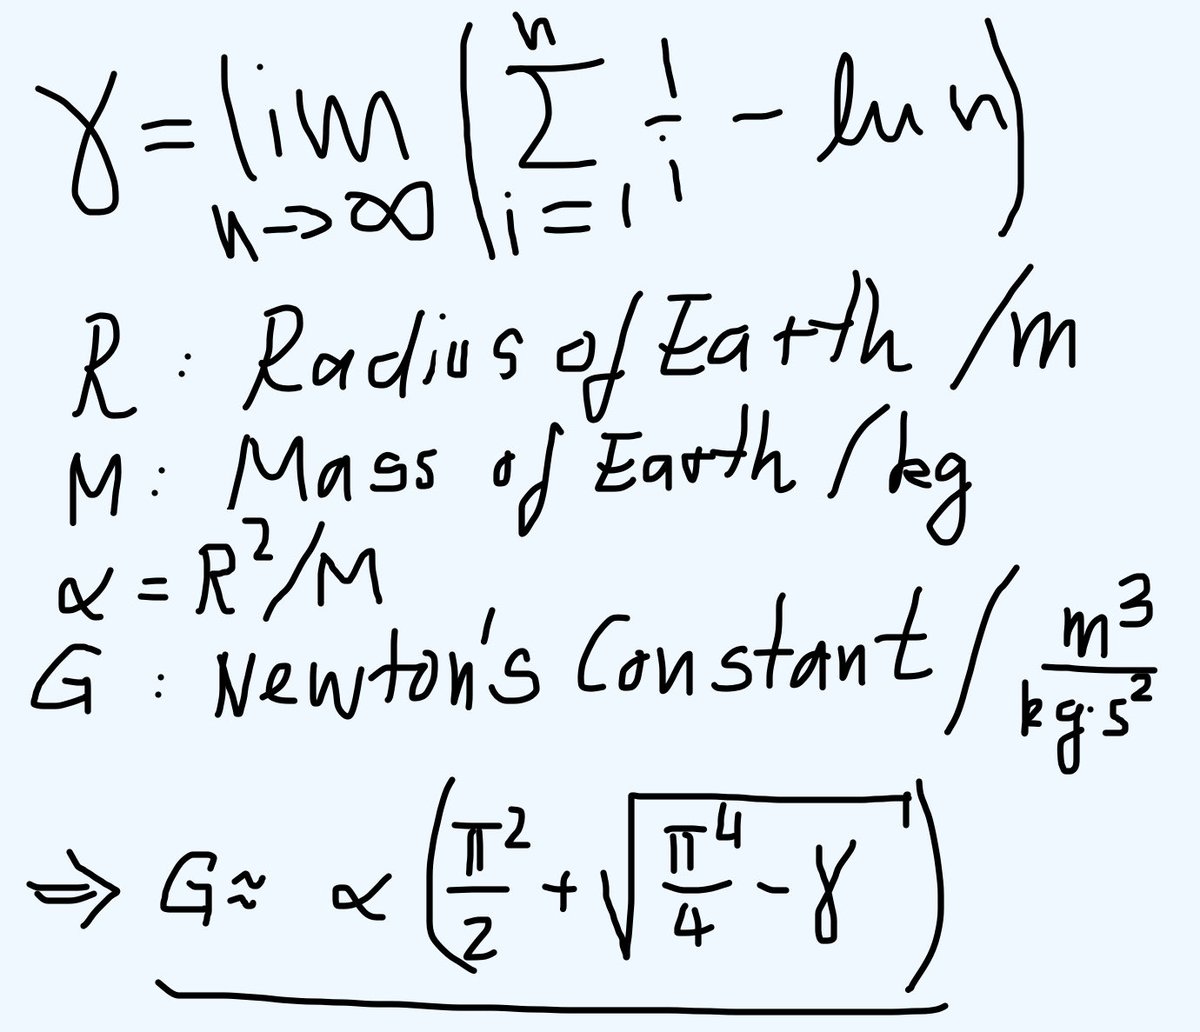 γ = lim_{n→∞} ( ∑_{i=1}^{n} 1/i − ln n )
R : Radius of Earth /m
M : Mass of Earth /kg
α = R²/M
G : Newton's Constant / m³/kg·s²
⇒ G ≈ α ( π²/2 + √(π⁴/4 − γ) )